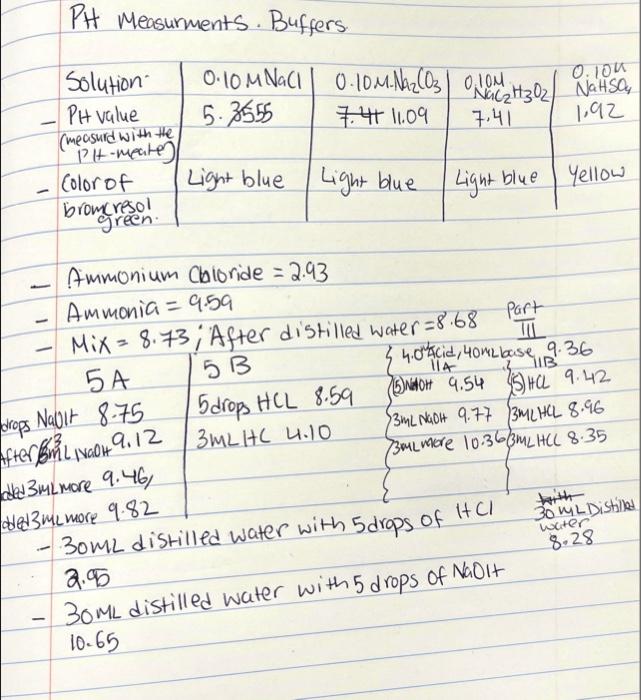 PH Measurments. Buffers.
Solution- 0.10MNaCl 0.10M.Na2CO3 0.10M NaC2H3O2 0.10M NaHSO4
- PH value 5.3555 7.41 11.09 7.41 1,92
(measurd with the
PH-meater)
- Color of Light blue Light blue Light blue Yellow
bromcresol
green.
- Ammonium Chloride = 2.93
- Ammonia = 9.59
- Mix = 8.73; After distilled water = 8.68 Part III
4.0 Acid, 40mL base 9.36
5A 5B 11A 11B
drops NaOH 8.75 5drops HCL 8.59 (5)NaOH 9.54 (5)HCL 9.42
After 3mL NaOH 9.12 3mL HC 4.10 3mL NaOH 9.77 3mL HCL 8.96
added 3mL more 9.46, 3mL more 10.36 3mL HCL 8.35
added 3mL more 9.82
- 30mL distilled water with 5 drops of HCl
2.95
with
30 mL Distilled
water
8.28
- 30mL distilled water with 5 drops of NaOH
10.65